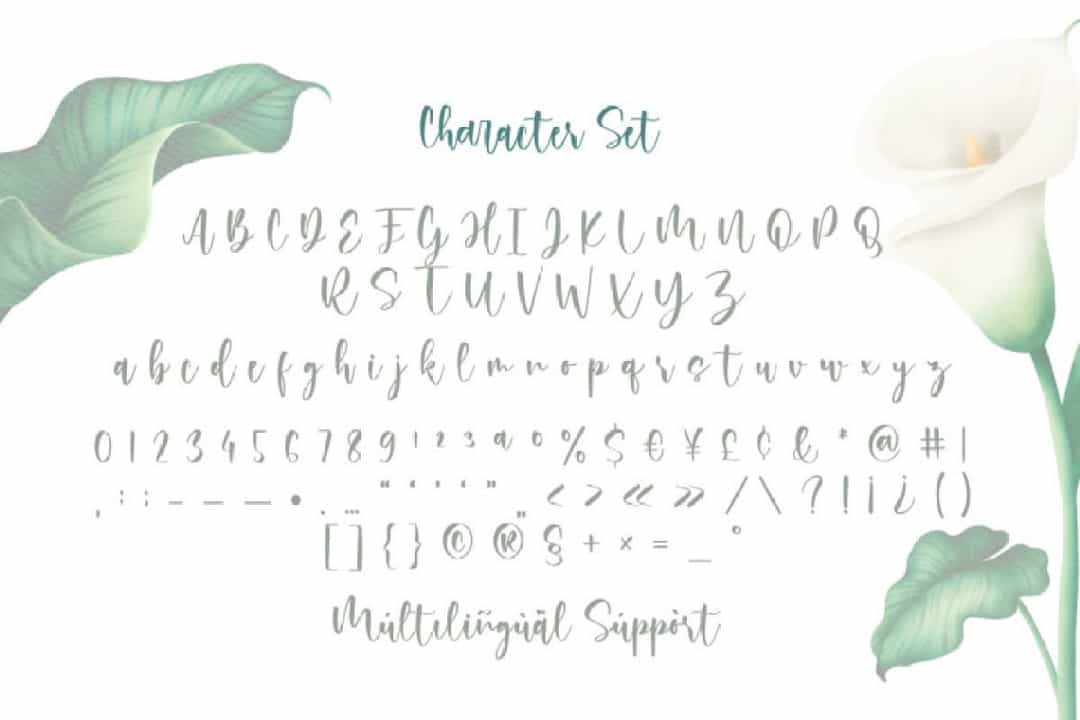 Character Set
A B C D E F G H I J K L M N O P Q
R S T U V W X Y Z
a b c d e f g h i j k l m n o p q r s t u v w x y z
0 1 2 3 4 5 6 7 8 9 ¹ ² ³ ª º % $ € ¥ £ ¢ & * @ # |
, : ; - – — • . … “ ‘ ’ ‘ ” „ < > « » / \ ? ! ¡ ¿ ( )
[ ] { } © ® § + × = _ °
Múltılıñgùäl Súppòrt